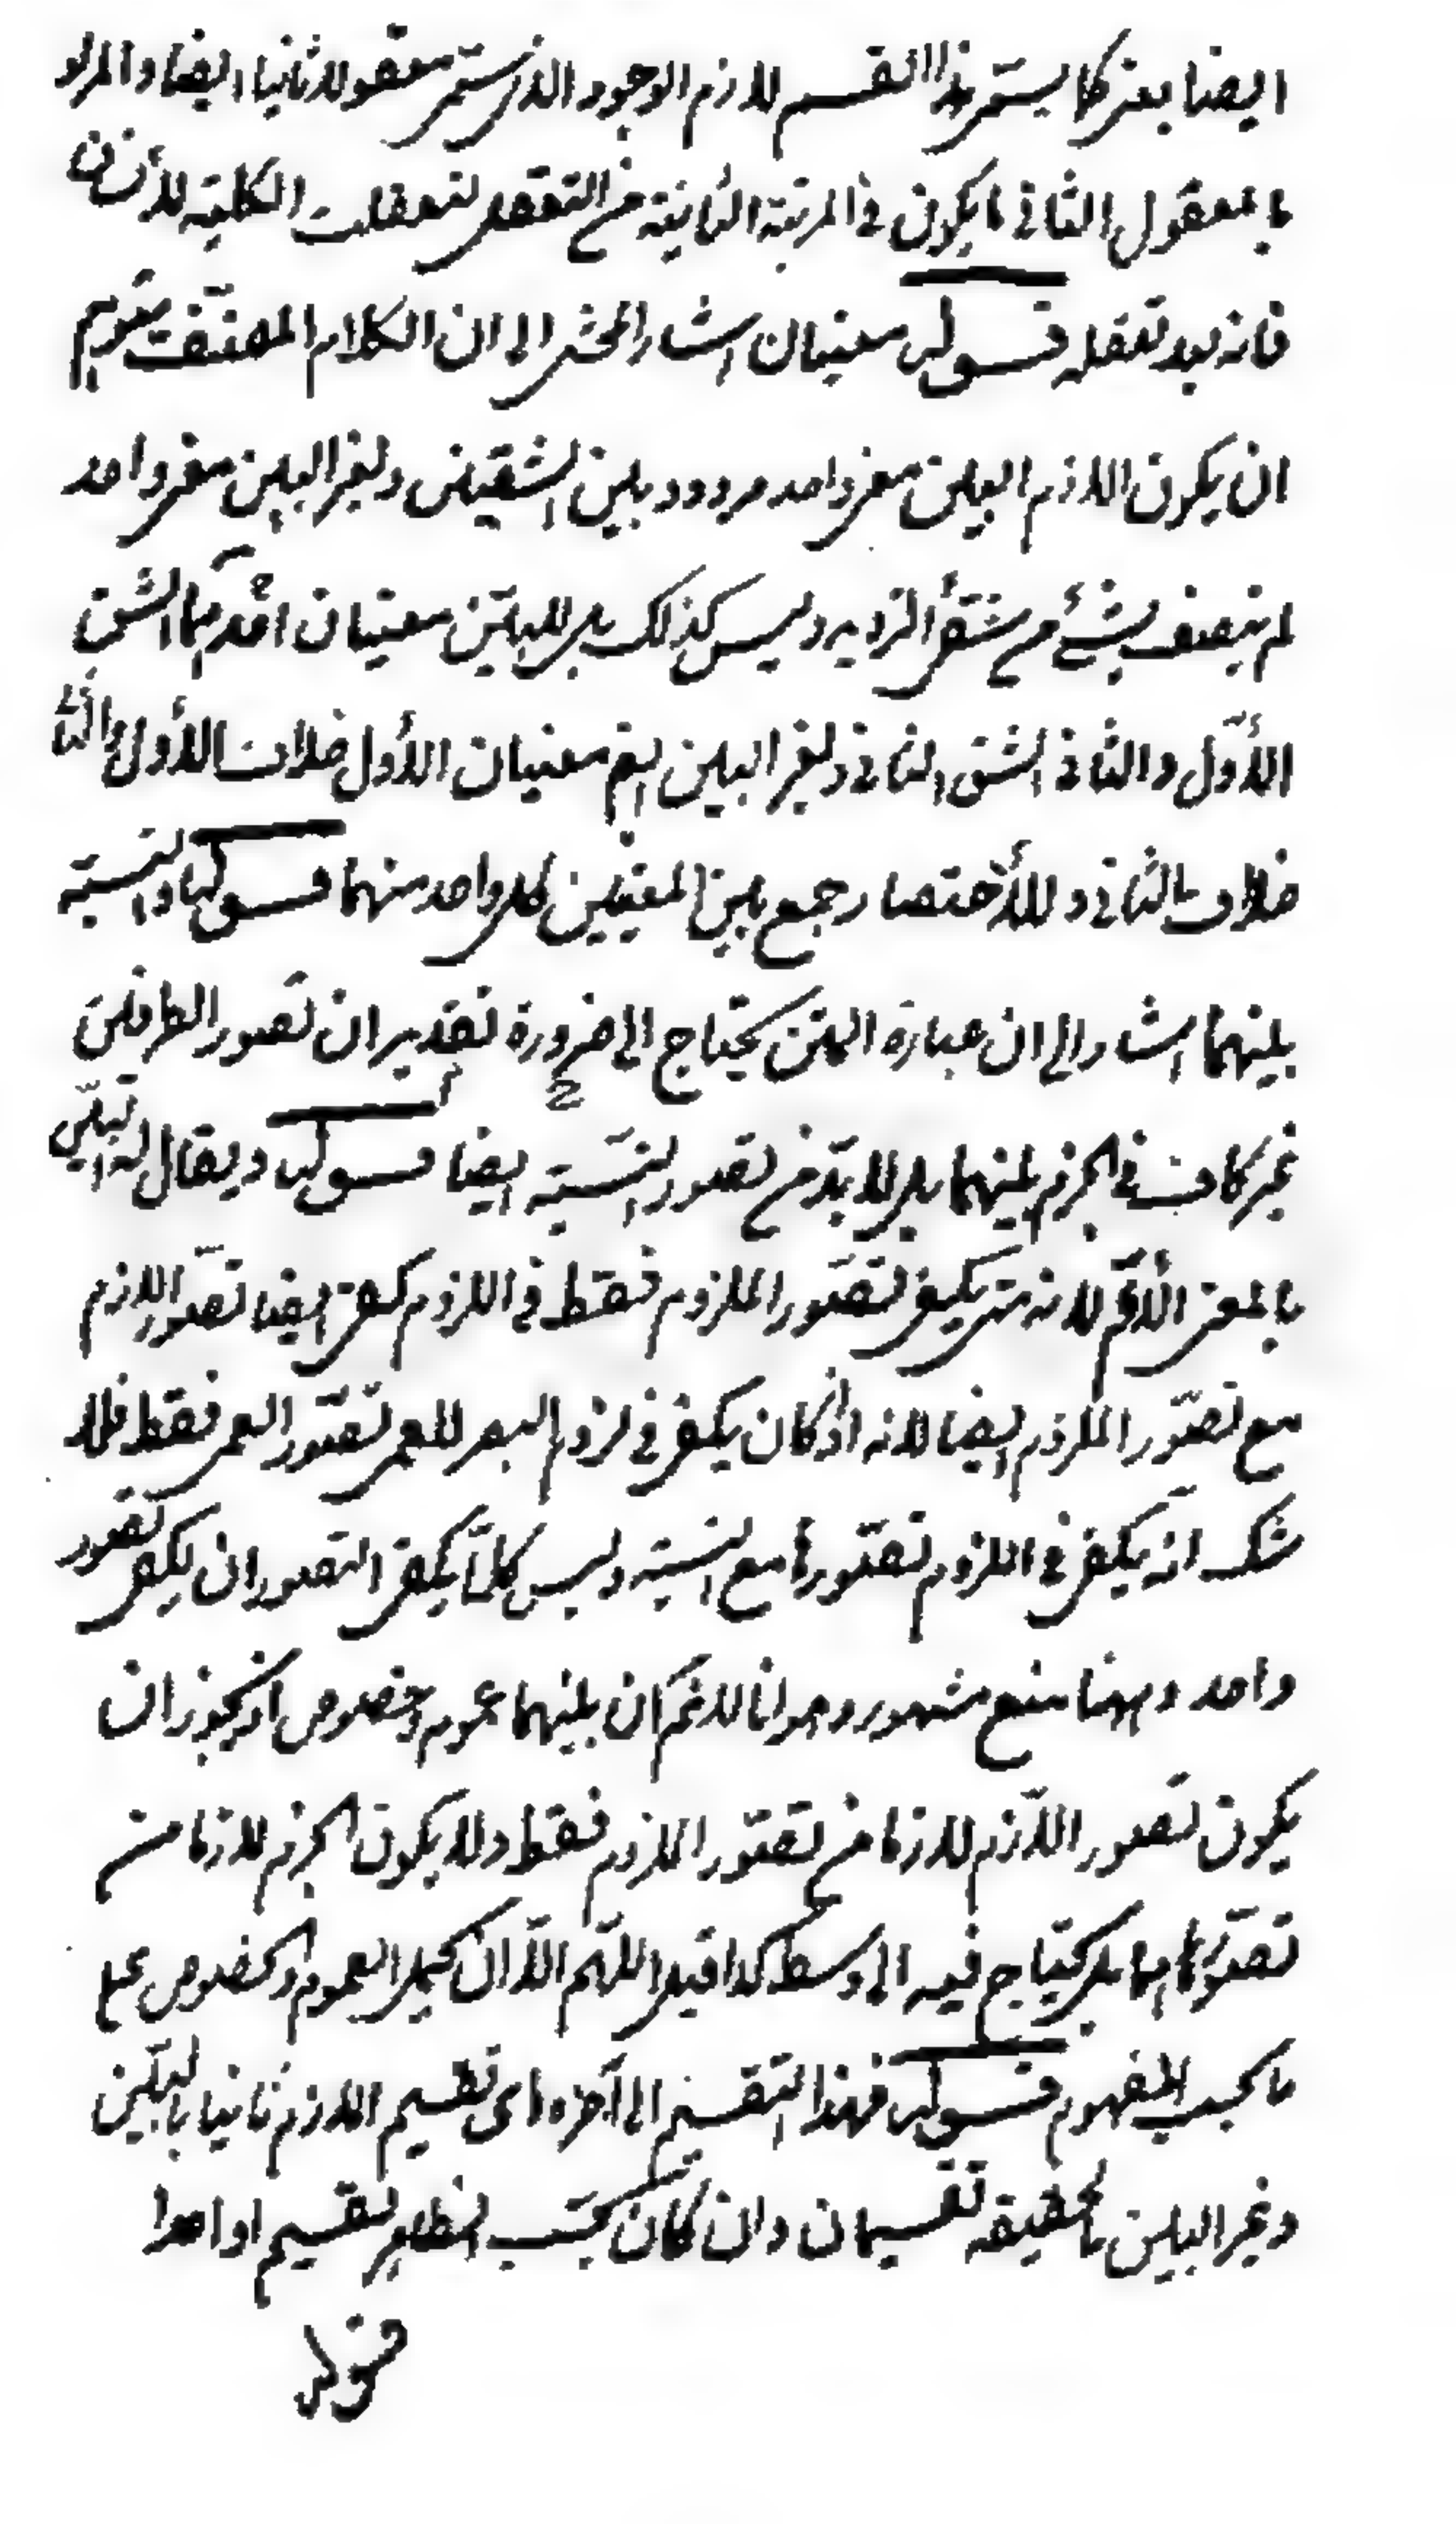 ايضا يعنى كما يستمر هذا القسم لازم الوجود الذى يستمر معقولا ثانيا ايضا والمراد
بالمعقول الثانى ما يكون فى المرتبة الثانية من التعقل لتعقلت الكلية للأنسان
فانه بعد تعقله قوله معنيان اشار المحشى الى ان الكلام المصنف يتوهم
ان يكون اللازم البين معنى واحد مردود بين الشقين ولغير البين معنى واحد
لم يتصف بشئ من شقى الترديد وليس كذلك بل للبين معنيان احدهما الشق
الأول والثانى الشق الثانى ولغير البين ايضا معنيان الأول خلاف الأول والثانى
خلاف الثانى وللأختصار جمع بين المعنيين لكل واحد منهما قوله والنسبة
بينهما اشار الى ان عبارة المتن يحتاج الى ضرورة تقدير ان تصور الطرفين
غير كاف فى الجزم بينهما بل لا بد من تصور النسبة ايضا قوله ويقال له البين
بالمعنى الأعم لانه متى يكفى تصور الملزوم فقط فى اللزوم كفى ايضا تصور اللازم
مع تصور الملزوم ايضا لانه اذ كان يكفى فى لزوم البصر للعمى تصور العمى فقط فلا
شك انه يكفى فى اللزوم تصورها مع النسبة وليس كلما يكفى التصوران يكفى تصور
واحد وههنا منع مشهور وهو انا لا نم ان بينهما عموم وخصوص اذ يجوز ان
يكون تصور اللازم لازما من تصور الملزوم فقط ولا يكون الجزم لازما من
تصورهما بل يحتاج فيه الى وسط كذا قيل اللهم الا ان يحمل العموم والخصوص على
ما بحسب المفهوم قوله فهذا التقسيم الى آخره اى تقسيم اللازم ثانيا بالبين
وغير البين بالحقيقة تقسيمان وان كان بحسب الظاهر تقسيم اواحدا
قوله